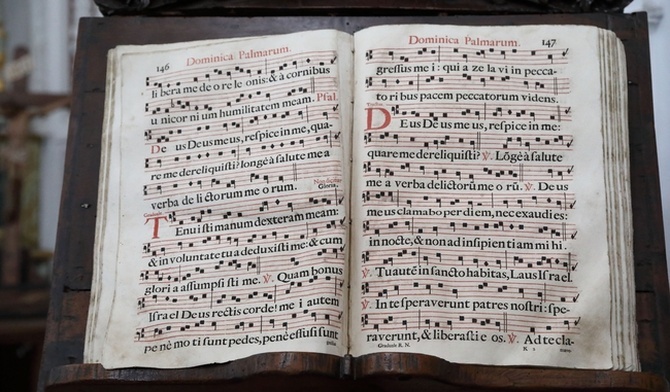 146 Dominica Palmarum.
li bera me de o re le onis: & à cornibus
u nicor ni um humilitatem meam. Psal.
De us Deus meus, respice in me, qua-
re me dereliquisti? longè à salute mea
verba de li ctorum me o rum. Gloria.
Tenui sti manum dexteram meam:
& in voluntate tu a deduxisti me: & cum
glori a assumpsi sti me. ℣. Quam bonus
Israel Deus rectis corde! me i autem
pe nè mo ti sunt pedes, penè effusi sunt
Dominica Palmarum. 147
gressus me i: qui a ze la vi in pecca-
to ri bus pacem peccatorum videns.
DEus Deus me us, respice in me:
quare me dereliquisti? ℣. Lõgè à salute
me a verba delictorũ me o rũ. ℣. De us
me us clamabo per diem, nec exaudi es:
in nocte, & non ad insipien ti am mi hi.
℣. Tu autẽ in sancto habitas, Laus Israel.
℣. In te speraverunt patres nostri: spe-
raverunt, & liberasti e os. ℣. Ad te cla-
Gradual. R. N.